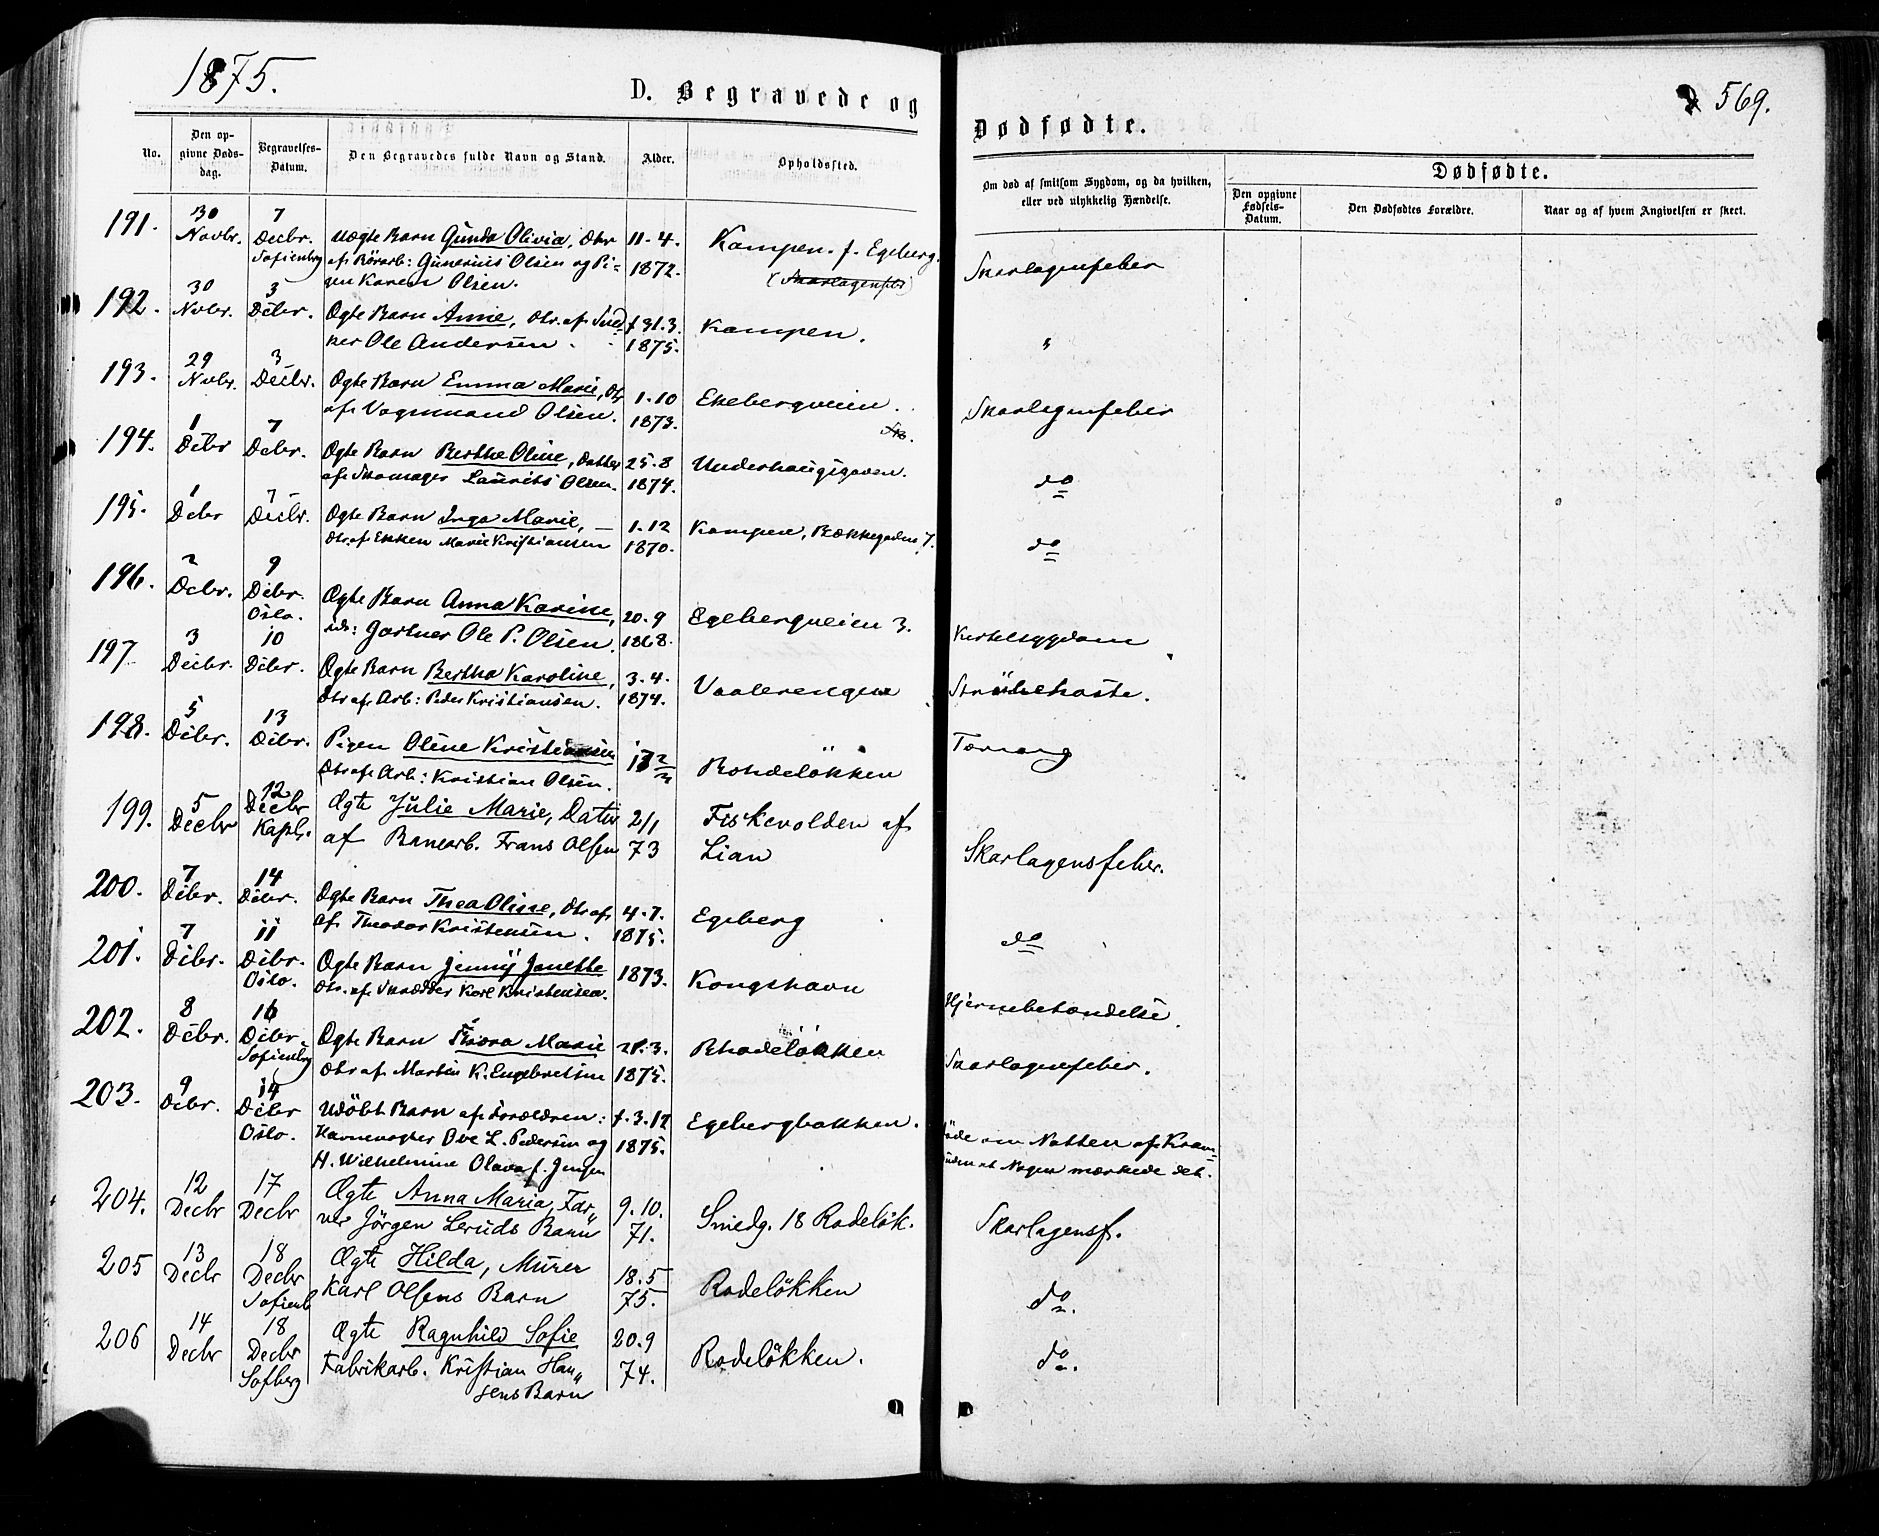 1875.
D. Begravede og
No.
Den opgivne Dødsdag.
Begravelses-Datum.
Den Begravedes fulde Navn og Stand.
Alder.
Opholdssted.
191. 30 Novbr. 7 Decbr. Sofienberg
uægte Barn Gunda Olivia, Dtr
af Rörarb: Gunerius Olsen og Pi=
gen Karen Olsen.
11-4. 1872.
Kampen. f. Egeberg.
(Skarlagensfeber)
192. 30 Novbr. 3 Debr.
Ægte Barn Annie, Dtr. af Sned
ker Ole Andersen
f 31.3. 1875.
Kampen.
193. 29 Novbr. 3 Decbr.
Ægte Barn Emma Marie, Dtr
af Vognmand Olsen.
1.10 1873.
Ekebergveien.
194. 1 Debr 7 Debr.
Ægte Barn Berthe Oline, Datter
af Skomager Lauritz Olsen.
25.8 1874.
Underhaugsgaven.
195. 1 Debr 7 Decbr.
Ægte Barn Inga Marie, —
Dtr. af Enken Marie Kristiansen
1.12 1870.
Kampen, Bækkegaden 7.
196. 2 Debr. 9 Debr. Oslo.
Ægte Barn Anna Karine,
Gartner Ole P. Olsen.
20.9 1868.
Egebergveien 3.
197 3 Debr. 10 Debr.
Ægte Barn Bertha Karoline,
Dtr af Arb: Peder Kristiansen.
3.4. 1874.
Vaalerengen
198. 5 Debr. 13 Debr.
Pigen Oline Kristiansen
Dtr af Arb: Kristian Olsen.
Rohdeløkken
199. 5 Decbr 12 Decbr Kapl.
Ægte Julie Marie, Dater
af Banearb. Frans Olsen
2/1 73
Fiskevolden af
Lian
200. 7 Debr. 14 Debr.
Ægte Barn Thea Oline, Dtr af
af Theodor Kristensen.
4.7. 1875.
Egeberg
201. 7 Debr. 11 Debr. Oslo.
Ægte Barn Jenny Janette
Dtr. af Skrædder Karl Kristensen.
1873.
Kongshavn
202. 8 Debr. 16 Debr. Sofienberg
Ægte Barn Thora Marie
Dtr af Martin K. Engebretsen
21.3. 1875.
Rhodeløkken
203. 9 Debr. 14 Debr Oslo.
Udöbt Barn af Forældren:
Havnevogter Ove L. Pedersen og
H. Wilhelmine Olava f. Jensen
f.3.12 1875.
Egebergbakken.
204. 12 Decbr 17 Decbr
Ægte Anna Maria, Far„
ver Jörgen Leruds Barn
9.10. 71.
Smedg. 18 Rodeløk.
205 13 Decbr 18 Decbr Sofienb
Ægte Hilda, Murer
Karl Olsens Barn
18.5 75.
Rodeløkken
206 14 Decbr 18 Decbr Sofberg
Ægte Ragnhild Sofie
Fabrikarb. Kristian Han„
sens Barn
20.9 74.
Rodeløkken.
569.
Dødfødte.
Om død af smitsom Sygdom, og da hvilken,
eller ved ulykkelig Hændelse.
Dødfødte.
Den opgivne Fødsels-Datum.
Den Dødfødtes Forældre.
Naar og af hvem Angivelsen er skeet.
Skarlagensfeber
"
Skarlagensfeber
do
do
Kirtelsygdom
Strübehoste.
Tæring
Skarlagensfeber.
do
Hjernebetændelse.
Skarlagensfeber.
döde om Natten af Kram=
uden at Nogen mærkede det.
Skarlagensf.
do.
do.